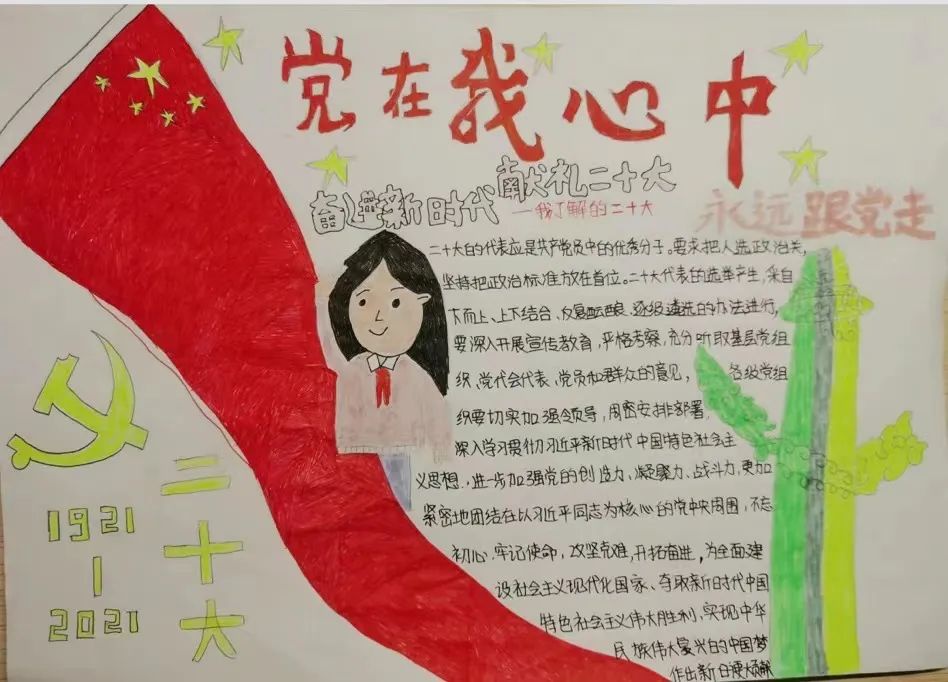 党在我心中
奋进新时代 献礼二十大
—我了解的二十大
永远跟党走
二十大的代表应是共产党员中的优秀分子。要求把人选政治关,
坚持把政治标准放在首位。二十大代表的选举产生,采自
下而上、上下结合、反复酝酿、逐级遴选的办法进行,
要深入开展宣传教育,严格考察,充分听取基层党组
织、党代会代表、党员和群众的意见, 各级党组
织要切实加强领导,周密安排部署,
深入学习贯彻习近平新时代中国特色社会主
义思想,进一步加强党的创造力,凝聚力、战斗力,更加
紧密地团结在以习近平同志为核心的党中央周围,不忘
初心,牢记使命,攻坚克难,开拓奋进,为全面建
设社会主义现代化国家、夺取新时代中国
特色社会主义伟大胜利,实现中华
民族伟大复兴的中国梦
作出新的贡献
1921
—
2021
二十大